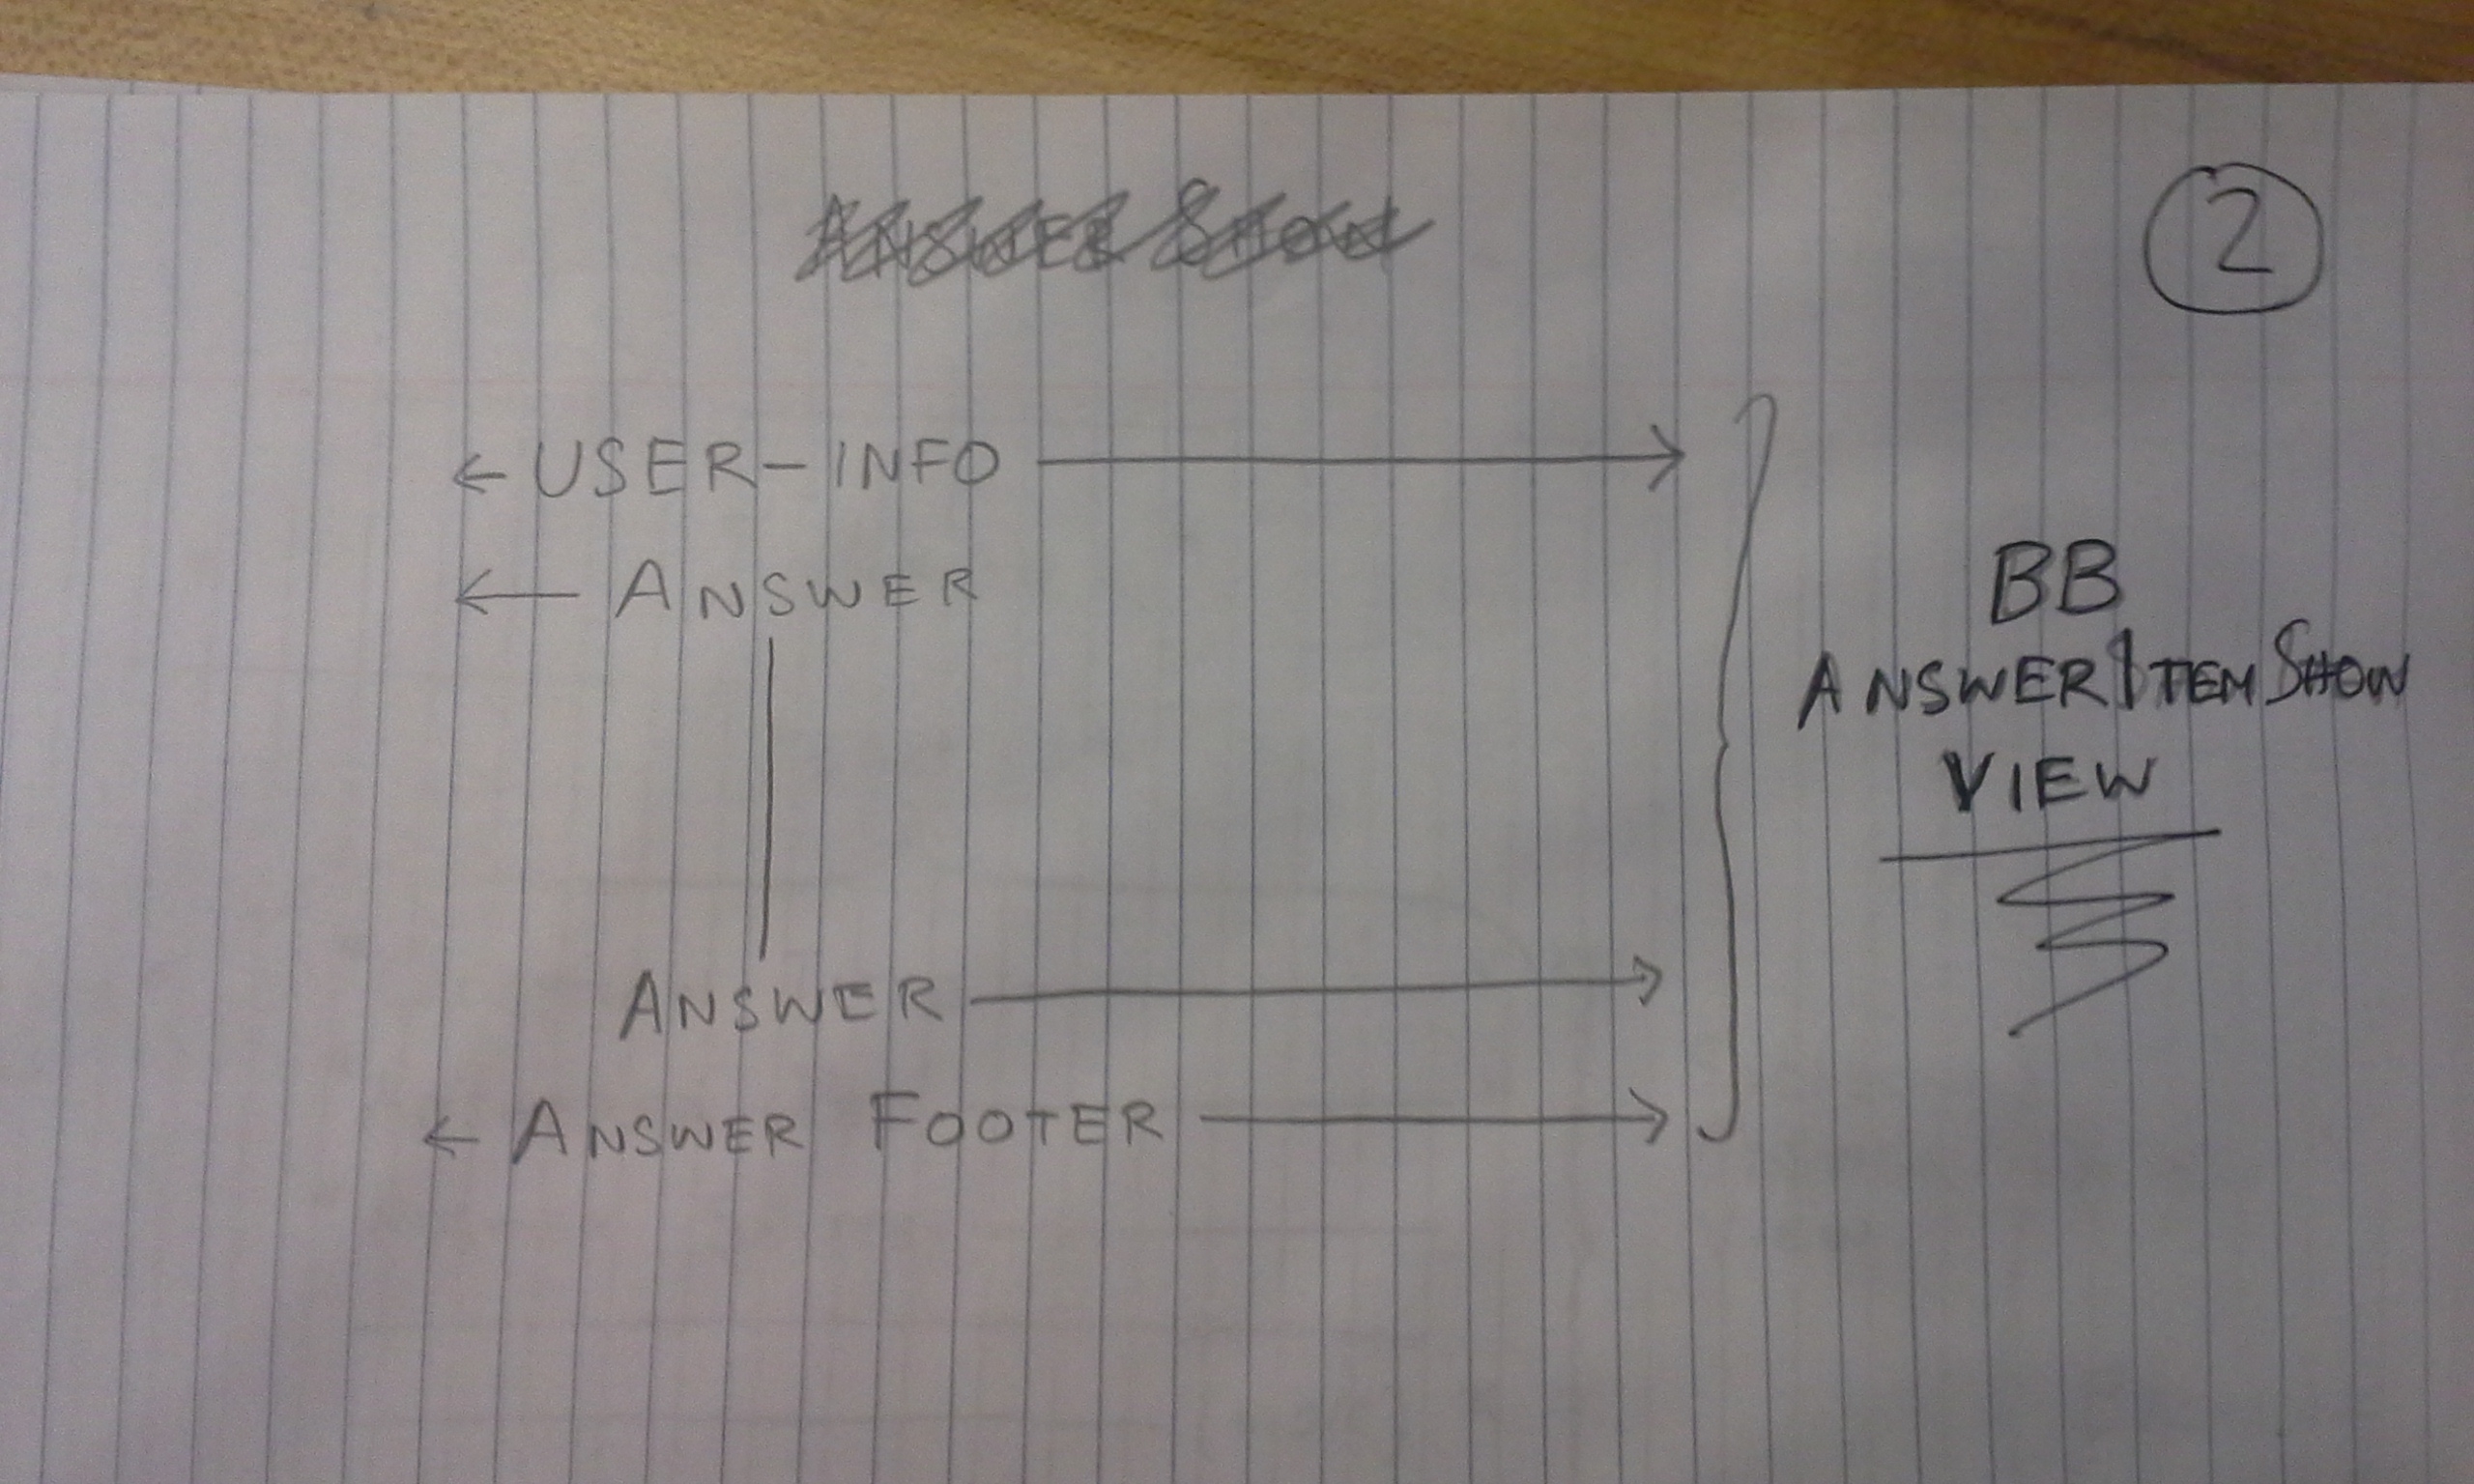 ANSWER SHOW
2
← USER-INFO →
← ANSWER
ANSWER →
← ANSWER FOOTER →
BB
ANSWERITEMSHOW
VIEW